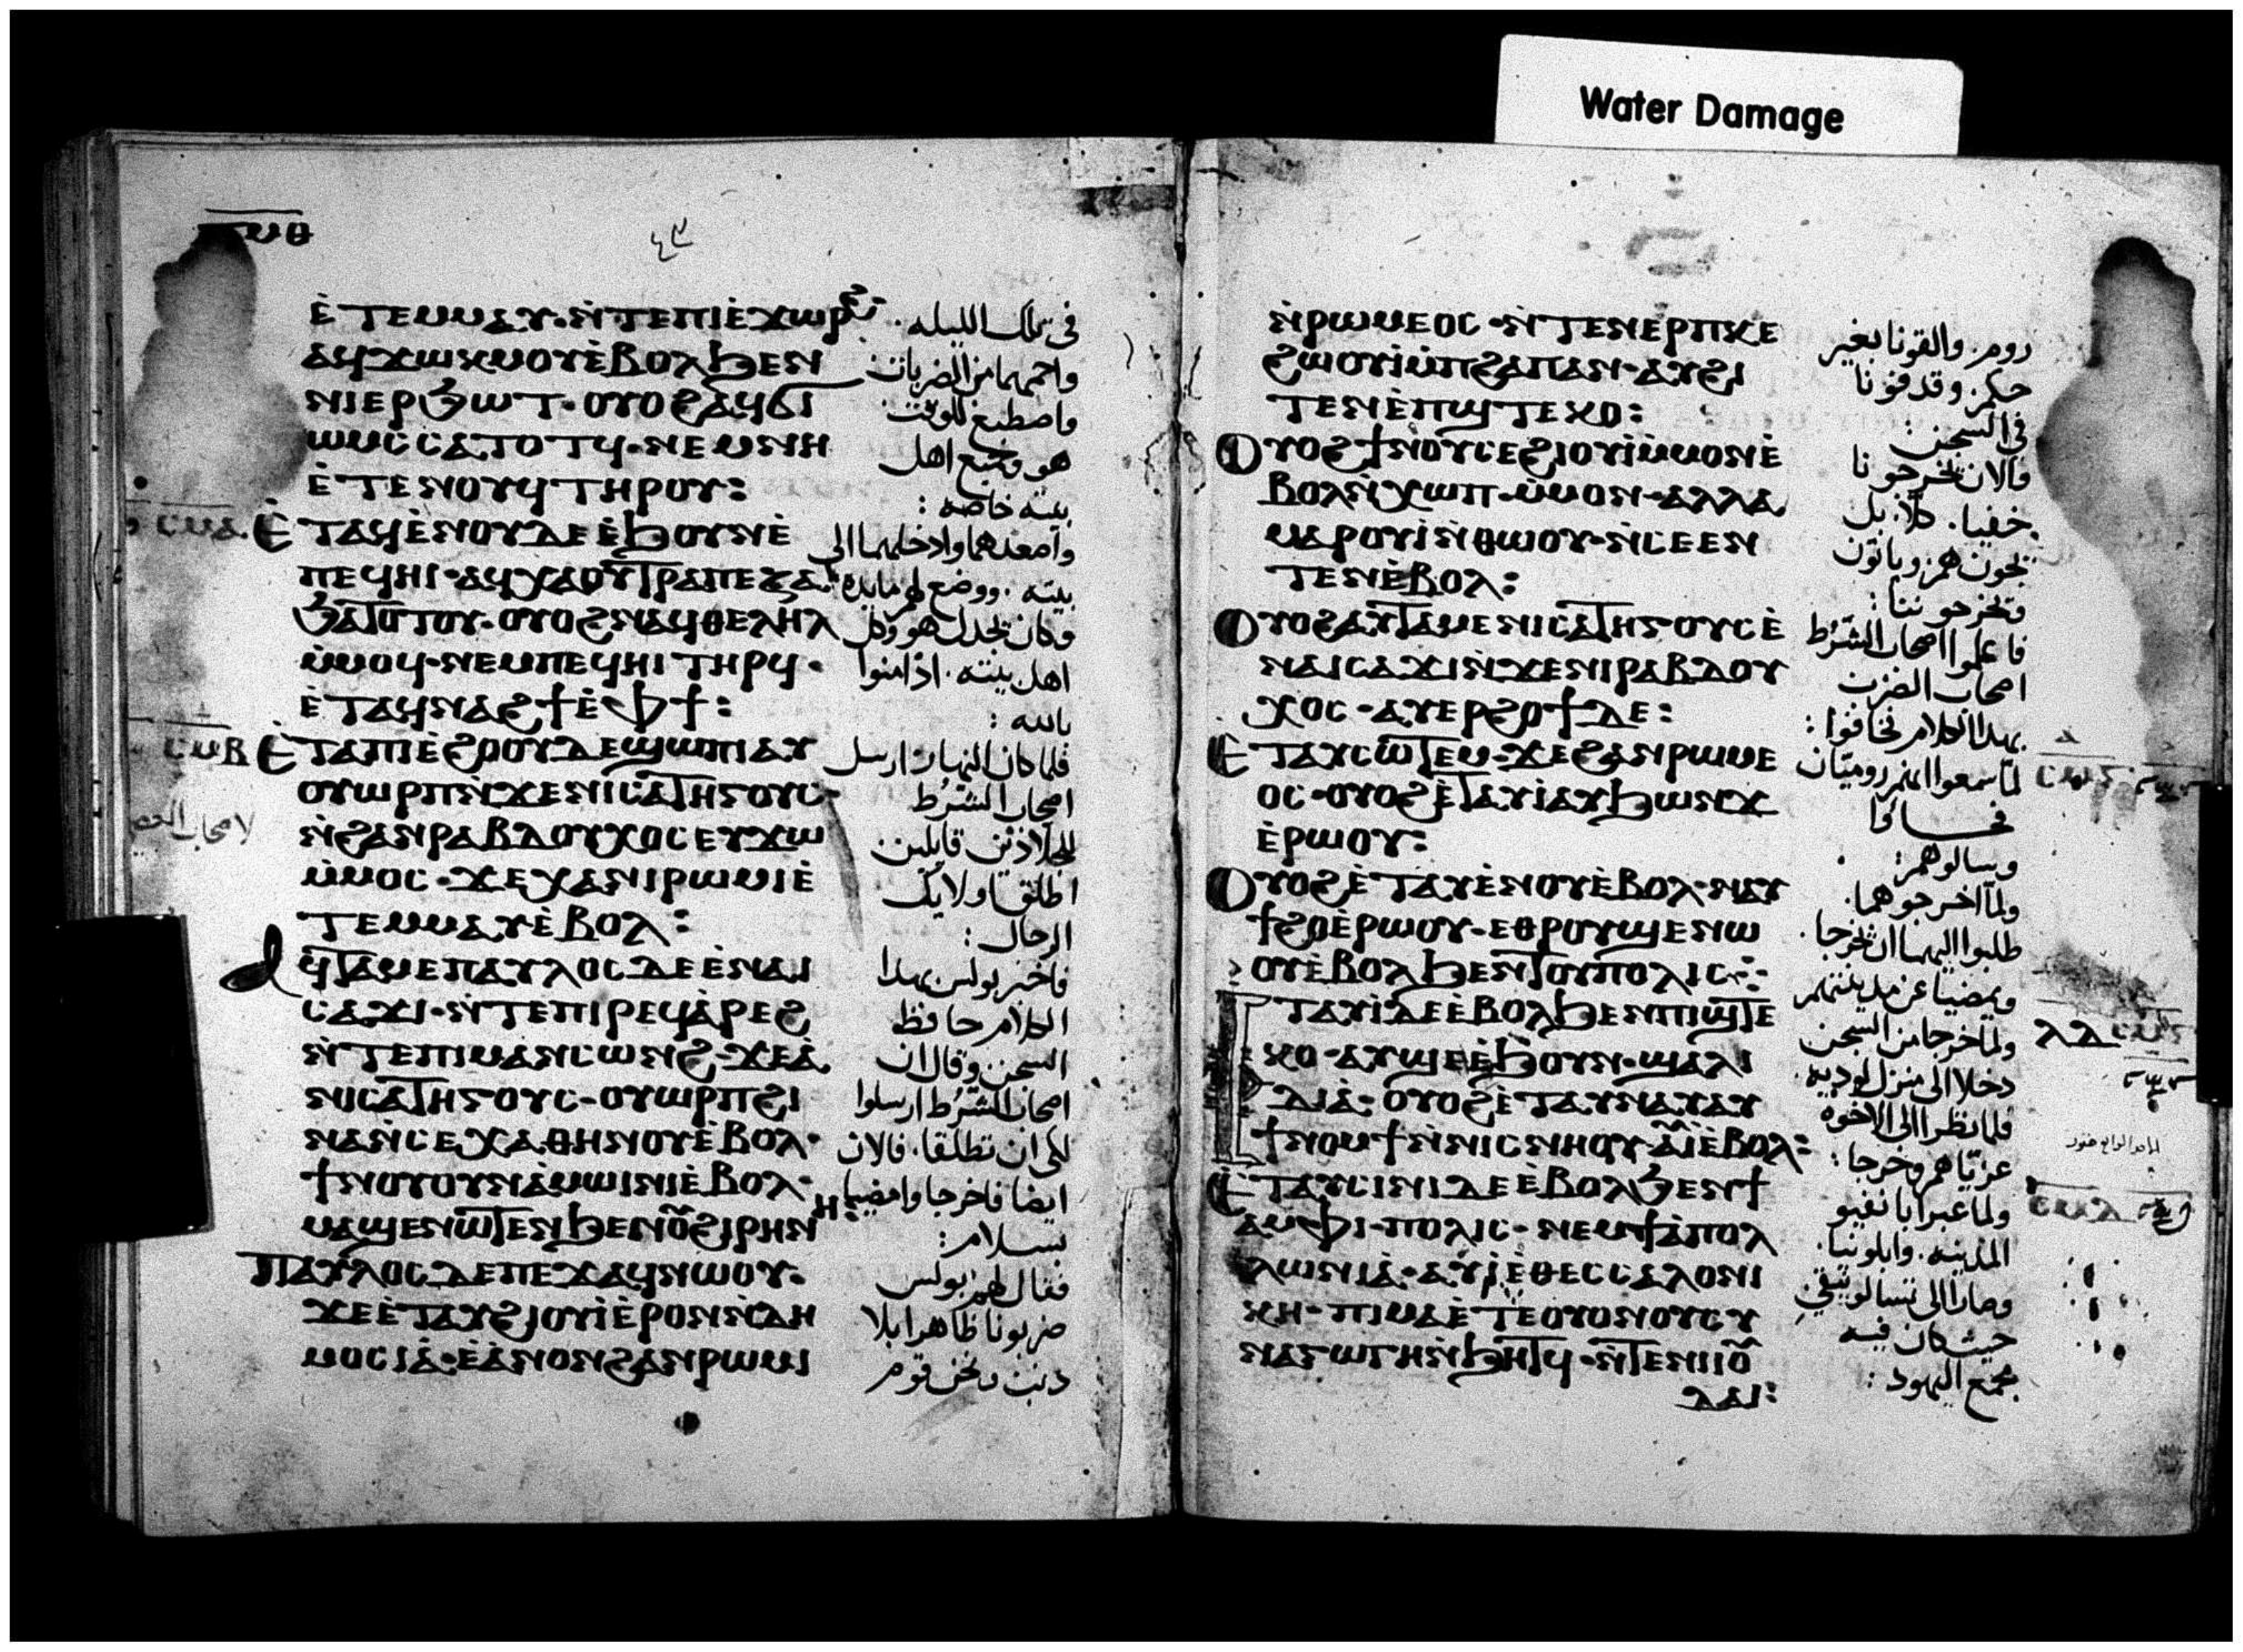 Water Damage
ⲉ̀ⲧⲉⲙⲙⲁⲩ·ⲛ̀ⲧⲉⲡⲓⲉ̀ϫⲱⲣϩ·
ⲁϥϫⲱⲕⲙⲟⲩⲉ̀ⲃⲟⲗϧⲉⲛ
ⲛⲓⲉⲣϧⲱⲧ·ⲟⲩⲟϩⲁϥϭⲓ
ⲱⲙⲥⲥⲁⲧⲟⲧϥ·ⲛⲉⲙⲛⲏ
ⲉ̀ⲧⲉⲛⲟⲩϥⲧⲏⲣⲟⲩ:
ⲉ̀ⲧⲁϥⲉ̀ⲛⲟⲩⲇⲉⲉ̀ϧⲟⲩⲛⲉ̀
ⲡⲉϥⲏⲓ·ⲁϥⲭⲁⲟⲩⲧⲣⲁⲡⲉⲍⲁ
ϧⲁⲧⲟⲧⲟⲩ·ⲟⲩⲟϩⲛⲁϥⲑⲉⲗⲏⲗ
ⲙ̀ⲙⲟϥ·ⲛⲉⲙⲡⲉϥⲏⲓⲧⲏⲣϥ·
ⲉ̀ⲧⲁϥⲛⲁϩϯⲉ̀ⲫϯ:
ⲉ̀ⲧⲁⲡⲓⲉ̀ϩⲟⲟⲩⲇⲉϣⲱⲡⲓⲁⲩ
ⲟⲩⲱⲣⲡⲛ̀ϫⲉⲛⲓⲥⲁⲧⲏⲅⲟⲩⲥ·
ⲛ̀ϩⲁⲛⲣⲁⲃⲇⲟⲩⲭⲟⲥⲉⲩϫⲱ
ⲙ̀ⲙⲟⲥ·ϫⲉⲭⲁⲛⲓⲣⲱⲙⲓⲉ̀
ⲧⲉⲙⲙⲁⲩⲉ̀ⲃⲟⲗ:
ⲁϥⲧⲁⲙⲉⲡⲁⲩⲗⲟⲥⲇⲉⲉ̀ⲛⲁⲓ
ⲥⲁϫⲓ·ⲛ̀ⲧⲉⲡⲓⲣⲉϥⲁ̀ⲣⲉϩ
ⲛ̀ⲧⲉⲡⲓⲙⲁⲛⲥⲱⲛϩ·ϫⲉⲁ̀
ⲛⲓⲥⲁⲧⲏⲅⲟⲩⲥ·ⲟⲩⲱⲣⲡϩⲓ
ⲛⲁⲛ̀ⲥⲉⲭⲁⲑⲏⲛⲟⲩⲉ̀ⲃⲟⲗ·
ϯⲛⲟⲩⲟⲩⲛⲁ̀ⲙⲱⲓⲛⲓⲉ̀ⲃⲟⲗ·
ⲙⲁϣⲉⲛⲱⲧⲉⲛϧⲉⲛⲟⲩϩⲓⲣⲏⲛⲏ:
ⲡⲁⲩⲗⲟⲥⲇⲉⲡⲉϫⲁϥⲛⲱⲟⲩ·
ϫⲉⲉ̀ⲧⲁⲩϩⲓⲟⲩⲓ̀ⲉ̀ⲣⲟⲛⲛ̀ⲇⲏ
ⲙⲟⲥⲓⲁ̀·ⲉ̀ⲁ̀ⲛⲟⲛϩⲁⲛⲣⲱⲙⲓ
في تلك الليله·
واحمهما من الضربات
واصطبغ للوقت
هو وجميع اهل
بيته خاصه:
واصعدهما وادخلهما الى
بيته· ووضع لهم مايده
وكان تجدل هو وكل
اهل بيته· اذ امنوا
بالله:
فلما كان النهار ارسل
اصحاب الشرط
للجلاذين قايلين
اطلقا اوليك
الرجال:
فاخبر بولس بهدا
الكلام حافظ
السجن وقال ان
اصحاب الشرط ارسلوا
لكى ان تطلقا· فالان
ايضا فاخرجا وامضيا
بسلام:
فقال لهم بولس
ضربونا ظاهرا بلا
دنب ونحن قوم
ⲛ̀ⲣⲱⲙⲉⲟⲥ·ⲛ̀ⲧⲉⲛⲉⲣⲡⲕⲉ
ϩⲱⲟⲩⲓ̀ⲙ̀ⲡϩⲁⲡⲁⲛ·ⲁⲩϩⲓ
ⲧⲉⲛⲉ̀ⲡϣⲧⲉⲕⲟ:
ⲟⲩⲟϩϯⲛⲟⲩⲥⲉϩⲓⲟⲩⲓ̀ⲙ̀ⲙⲟⲛⲉ̀
ⲃⲟⲗⲛ̀ⲭⲱⲡ·ⲙ̀ⲙⲟⲛ·ⲁⲗⲗⲁ
ⲙⲁⲣⲟⲩⲓ̀ⲛ̀ⲑⲱⲟⲩ·ⲛ̀ⲥⲉⲉⲛ
ⲧⲉⲛⲉ̀ⲃⲟⲗ:
ⲟⲩⲟϩⲁⲩⲧⲁⲙⲉⲛⲓⲥⲁⲧⲏⲅⲟⲩⲥⲉ̀
ⲛⲁⲓⲥⲁϫⲓⲛ̀ϫⲉⲛⲓⲣⲁⲃⲇⲟⲩ
ⲭⲟⲥ·ⲁⲩⲉⲣϩⲟϯⲇⲉ:
ⲉ̀ⲧⲁⲩⲥⲱⲧⲉⲙ·ϫⲉϩⲁⲛⲣⲱⲙⲉ
ⲟⲥ·ⲟⲩⲟϩⲉ̀ⲧⲁⲩⲓ̀ⲁⲩϧⲱⲛⲧ
ⲉ̀ⲣⲱⲟⲩ:
ⲟⲩⲟϩⲉ̀ⲧⲁⲩⲉ̀ⲛⲟⲩⲉ̀ⲃⲟⲗ·ⲛⲁⲩ
ϯϩⲟⲉ̀ⲣⲱⲟⲩ·ⲉⲑⲣⲟⲩϣⲉⲛⲱ
ⲟⲩⲉ̀ⲃⲟⲗϧⲉⲛⲧⲟⲩⲡⲟⲗⲓⲥ
ⲉⲧⲁⲩⲓ̀ⲇⲉⲉ̀ⲃⲟⲗϧⲉⲛⲡⲓϣⲧⲉ
ⲕⲟ·ⲁⲩϣⲉⲉ̀ϧⲟⲩⲛ·ϣⲁⲗⲓ
ⲇⲓⲁ̀·ⲟⲩⲟϩⲉ̀ⲧⲁⲩⲛⲁⲩⲁⲩ
ϯⲛⲟⲙϯⲛ̀ⲛⲓⲥⲛⲏⲟⲩ·ⲁⲩⲓ̀ⲉ̀ⲃⲟⲗ:
ⲉ̀ⲧⲁⲩⲥⲓⲛⲓⲇⲉⲉ̀ⲃⲟⲗϧⲉⲛϯ
ⲁⲙⲫⲓ·ⲡⲟⲗⲓⲥ·ⲛⲉⲙϯⲁ̀ⲡⲟⲗ
ⲗⲱⲛⲓⲁ̀·ⲁⲩⲓ̀ⲉ̀ⲑⲉⲥⲥⲁⲗⲟⲛⲓ
ⲕⲏ·ⲡⲓⲙⲁⲉ̀ⲧⲉⲟⲩⲟⲛⲟⲩⲥⲩ
ⲛⲁⲅⲱⲅⲏⲛ̀ϧⲏⲧϥ·ⲛ̀ⲧⲉⲛⲓⲓⲟⲩ
ⲇⲁⲓ:
روم· والقونا بغير
حكم· وقد فونا
في السجن:
فالان تخرجونا
خفيا· كلا· بل
يجون هم· وياتون
وتخرجوننا:
فاعلموا اصحاب الشرط
اصحاب الضرب
بهدا الكلام فخافوا:
لما سمعوا انهم روميان
فجاوا
وسالوهم:
ولما اخرجوهما·
طلبوا اليهما ان تخرجا·
ويمضيا عن مدينتهم
ولما خرجا من السجن
دخلا الى منزل لوديه·
فلما نظرا الى الاخوه
عزياهم وخرجا:
ولما عبرا بانفيو
المدينه· وابلونيا·
وصارا الى تسالونيقي
حيث كان فيه
مجمع اليهود: